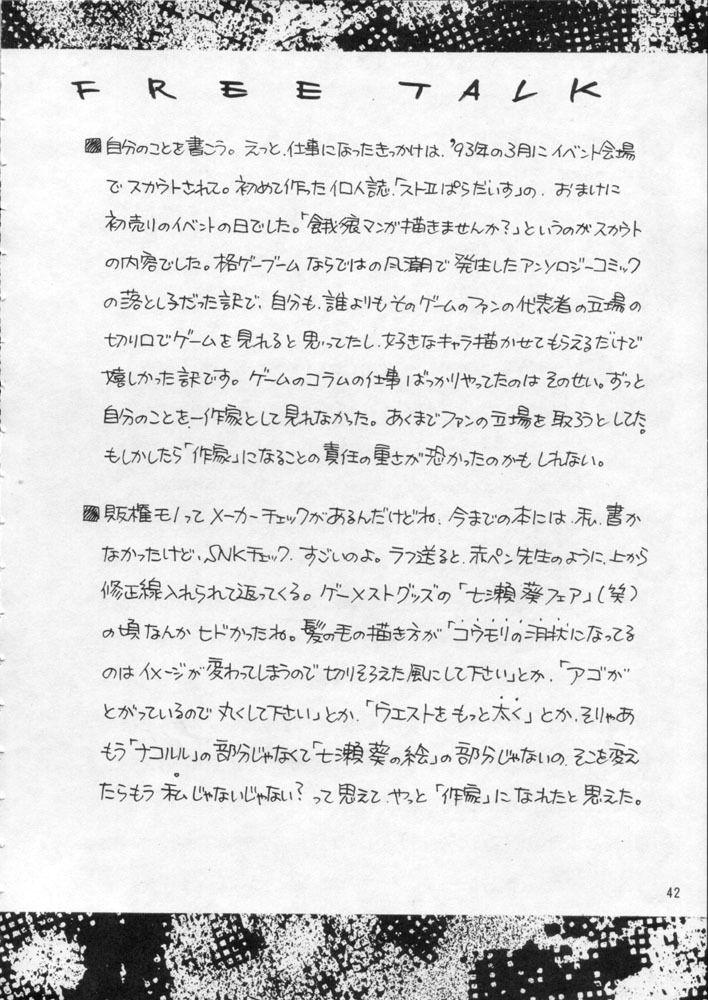 FREE TALK
▨自分のことを書こう。えっと、仕事になったきっかけは、'93年の3月にイベント会場
でスカウトされて。初めて作った同人誌、「ストIIぱらだいす」の、おまけに
初売りのイベントの日でした。「餓狼マンガ描きませんか?」というのがスカウト
の内容でした。格ゲーブームならではの風潮で発生したアンソロジーコミック
の落とし子だった訳で、自分も、誰よりもそのゲームのファンの代表者の立場の
切り口でゲームを見れると思ってたし、好きなキャラ描かせてもらえるだけで
嬉しかった訳です。ゲームのコラムの仕事ばっかりやってたのはそのせい。ずっと
自分のことを、一作家として見れなかった。あくまでファンの立場を取ろうとしてた。
もしかしたら「作家」になることの責任の重さが恐かったのかもしれない。
▨版権モノってメーカーチェックがあるんだけどね、今までの本には、私、書か
なかったけど、SNKチェック、すごいのよ。ラフ送ると、赤ペン先生のように、上から
修正線入れられて返ってくる。ゲーメストグッズの「七瀬葵フェア」(笑)
の頃なんかヒドかったね。髪の毛の描き方が「コウモリの羽状になってる
のはイメージが変わってしまうので切りそろえた風にして下さい」とか、「アゴが
とがっているので丸くして下さい」とか、「ウエストをもっと太く」とか、そりゃあ
もう「ナコルル」の部分じゃなくて「七瀬葵の絵」の部分じゃないの、そこを変え
たらもう私じゃないじゃない?って思えて、やっと「作家」になれたと思えた。
42